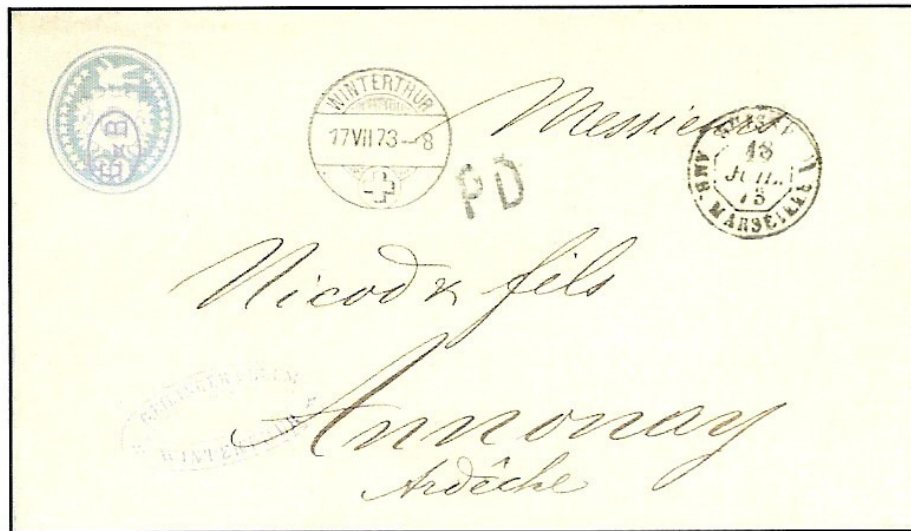 WINTERTHUR
17 VII 73-8
PD
SUISSE
18
JUIL.
73
AMB. MARSEILLE
Messieurs
Nicod & fils
Annonay
Ardèche